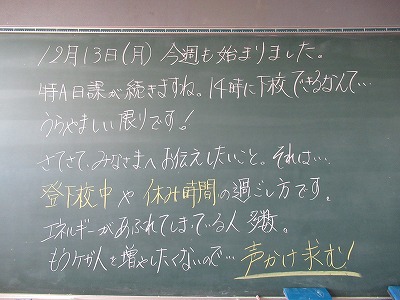 12月13日(月) 今週も始まりました。
特A日課が続きますね。14時に下校できるなんて…
うらやましい限りです!
さてさて、みなさまへお伝えしたいこと。それは…
登下校中や休み時間の過ごし方です。
エネルギーがあふれてしまっている人多数。
もうケガ人を増やしたくないので…声かけ求む!